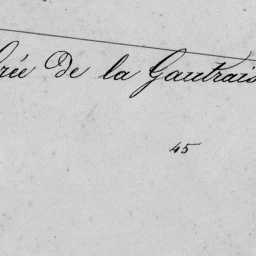 De la Gautrais
45